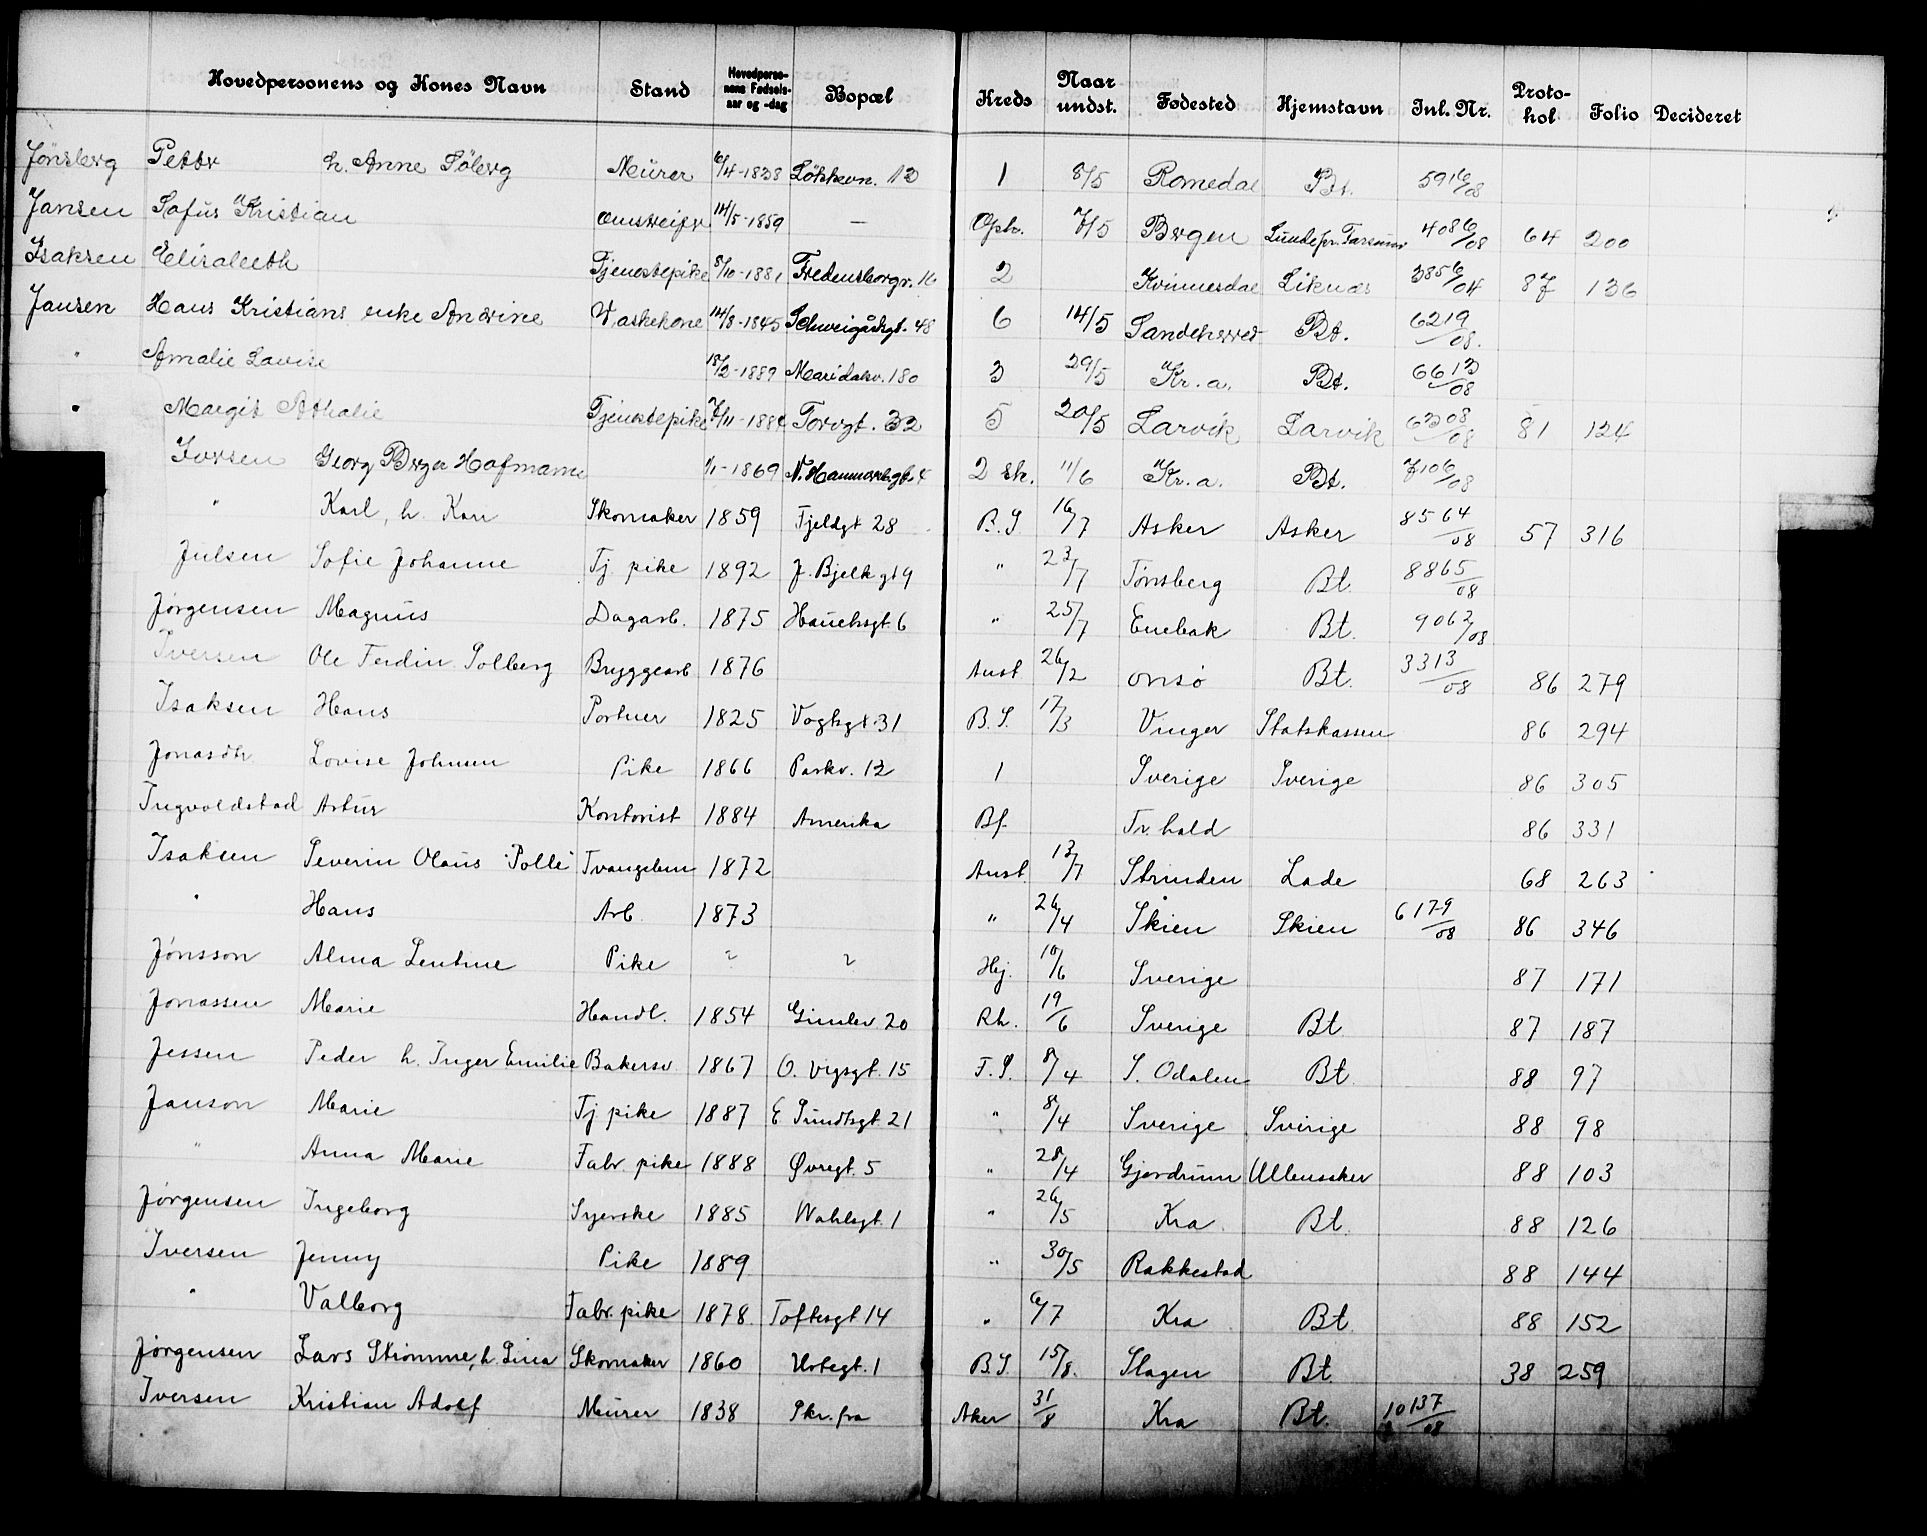 Hovedpersonens og Kones Navn Stand Hovedperso-nens Fødsels-aar og -dag Bopæl Kreds Naar undst. Fødested Hjemstavn Inl. Nr. Proto-hol Folio Decideret
Jönsberg Petter h. Anne Söberg Murer 6/4-1838 Lökkevn. 12 1 8/5 Romedal Bt. 5916/08
Jansen Sofus Kristian omstreifer 14/5-1859 — Oph. 7/5 Bergen 4086/08 64 200
Isaksen Elisabeth Tjenestepike 8/10-1881 Fredensborgv. 16 2 Kvinnesdal Liknes 3856/04 87 136
Jansen Hans Kristians enke Andrine Vaskekone 14/8-1845 Schweigårdsgt. 48 6 14/5 Sandeherred Bt. 6219/08.
" Amalie Lovise 18/2-1889 Maridalsv. 180 3 29/5 Kr.a. Bt. 6613/08
" Margit Athalie Tjenestepike 7/11-1884 Torvgt. 32 5 20/5 Larvik Larvik 6308/08 81 124
Iversen Georg Berger Hofmann 1/1-1869 N. Hammersbgt. 4 2 sk. 11/6 Kr.a. Bt. 7106/08
" Karl, h. Kari Skomaker 1859 Fjeldgt 28 B.S 16/7 Asker Asker 8564/08 57 316
Julsen Sofie Johanne Tj. pike 1892 J. Bjelk gt 9 " 23/7 Tønsberg Bt. 8865/08
Jørgensen Magnus Dagarb. 1875 Hauchsgt. 6 " 25/7 Enebak Bt. 9062/08
Iversen Ole Ferdin. Solberg Bryggearb 1876 Anst 26/2 onsø Bt. 3313/08 86 279
Isaksen Hans Portner 1825 Vogtsgt. 31 B.S. 17/3 Vinger Statskassen 86 294
Jonasdtr. Lovise Johnsen Pike 1866 Parkv. 12 1 Sverige Sverige 86 305
Ingvoldstad Artur Kontorist 1884 Amerika Bf. Fr. hald 86 331
Isaksen Severin Olaus "Polle" Tvangslem 1872 Anst. 13/7 Strinden Lade 68 263
" Hans Arb. 1873 " 26/4 Skien Skien 6179/08 86 346
Jønsson Alma Lentine Pike " " Hej. 10/6 Sverige 87 171
Jonassen Marie Handl. 1854 Gimlev 20 Rh. 19/6 Sverige Bt 87 187
Jessen Peder h. Inger Emilie Bakersv. 1867 O. vigsgt. 15 F.S. 8/4 S. Odalen Bt. 88 97
Janson Marie Tj pike 1887 E Sundtsgt. 21 " 8/4 Sverige Sverige 88 98
" Anna Marie Fabr. pike 1888 Øvregt. 5 " 28/4 Gjerdrum Ullensaker 88 103
Jørgensen Ingeborg Syerske 1885 Wahlsgt. 1 " 26/5 Kra. Bt. 88 126
Iversen Jenny Pike 1889 " 30/5 Rakkestad 88 144
" Valborg Fabr. pike 1878 Toftesgt 14 " 6/7 Kra Bt. 88 152
Jørgensen Lars Strømme, h. Lina Skomaker 1860 Urtegt. 1 B.S. 15/8. Slagen Bt. 38 259
Iversen Kristian Adolf Murer 1838 Skr. fra Aker 31/8 Kra Bt. 10137/08